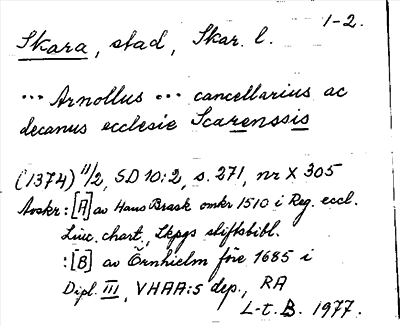 1-2.
Skara, stad, Skar. l.
... Arnollus ... cancellarius ac
decanus ecclesie Scarenssis
(1374) 11/2, SD 10:2, s. 271, nr X 305
Avskr: [A] av Hans Brask omkr 1510 i Reg. eccl.
Linc. chart, Lkpgs stiftsbibl.
: [B] av Örnhielm före 1685 i
Dipl. III, VHAA:s dep., RA
L-t. B. 1977.